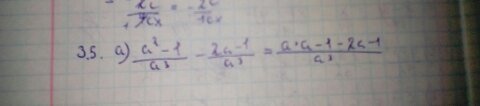 2c/4cx = -2c/1cx
3.5. а) a²-1/a³ - 2a-1/a³ = a·a-1-2a-1/a³